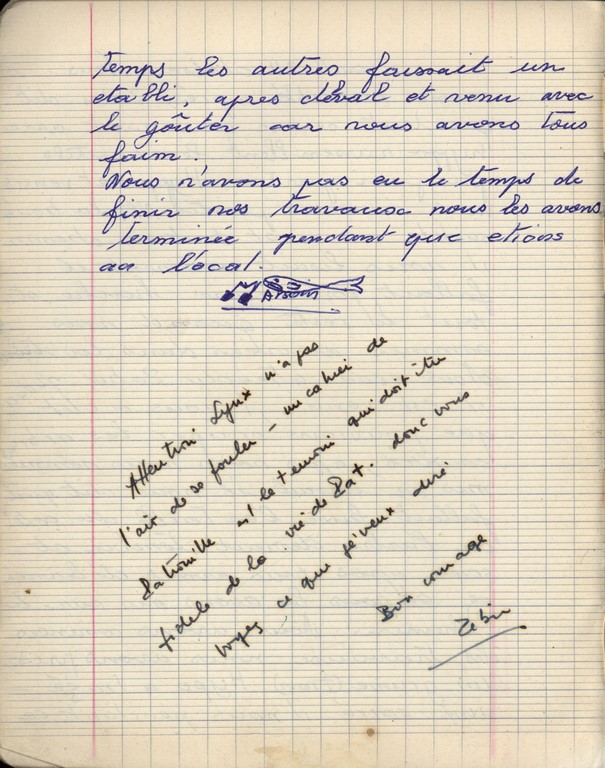 temps les autres faissait un
etabli, apres cheval et venu avec
le goûter car nous avons tous
faim.
Nous n'avons pas eu le temps de
finir nos travause nous les avons
terminée pendant que etions
au l'ocal.
Attention Lynx n'a pas
l'air de se fouler - un cahier de
Patrouille est le temoin qui doit être
fidele de la vie de Pat. donc vous
voyez ce que je veux dire
Bon courage
Zébu